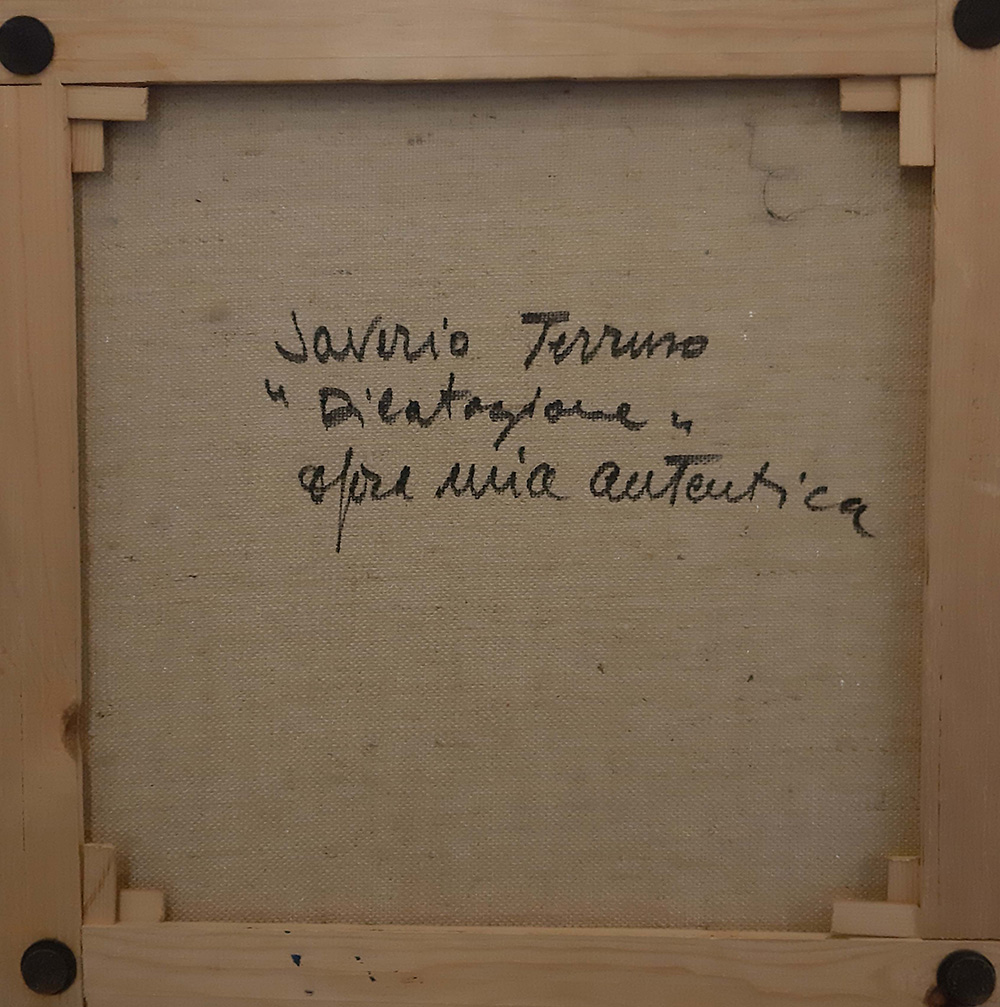 Saverio Terruso
"Dilatazione"
opera mia autentica